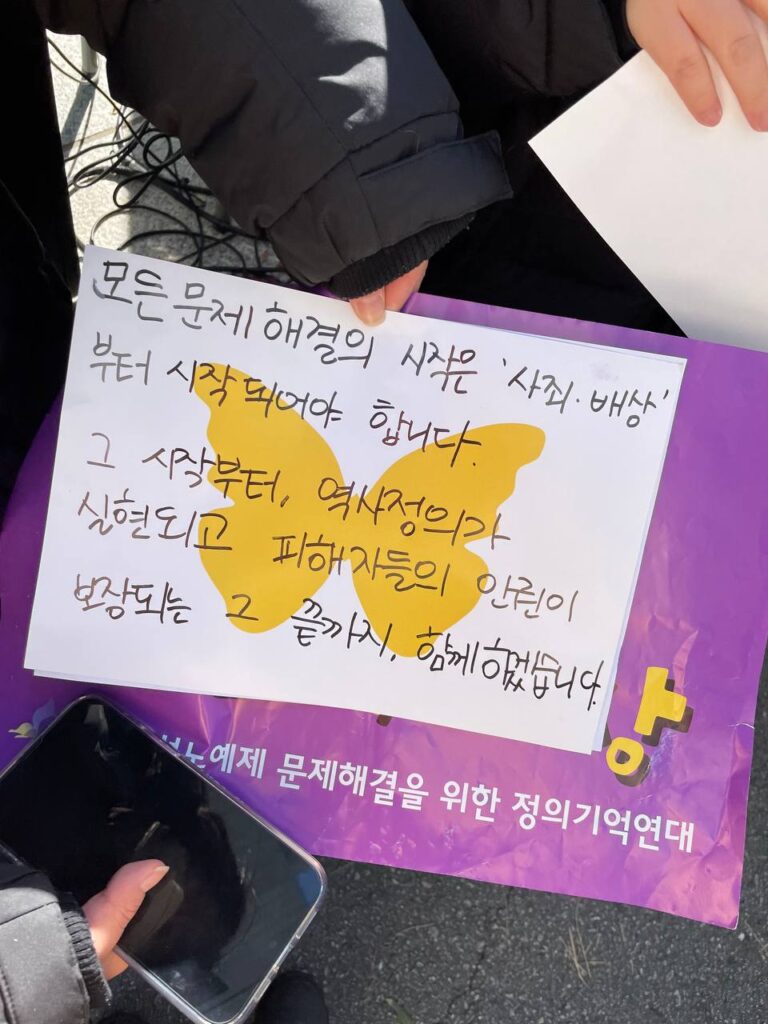 모든 문제 해결의 시작은 '사죄·배상'
부터 시작 되어야 합니다.
그 시작부터, 역사정의가
실현되고 피해자들의 안린이
보장되는 그 끝까지, 함께하겠습니다.
상
노예제 문제해결을 위한 정의기억연대